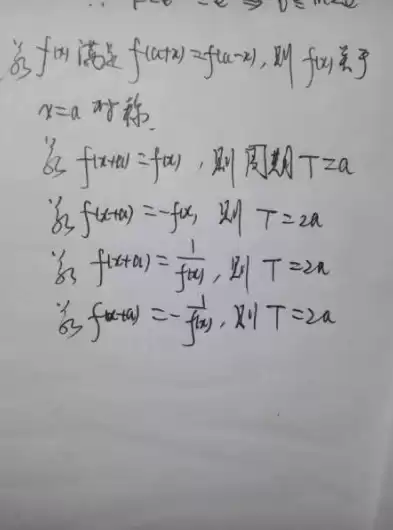 若f(x)满足f(a+x)=f(a-x),则f(x)关于
x=a对称.
若f(x+a)=f(x),则周期T=a
若f(x+a)=-f(x),则T=2a
若f(x+a)=1/f(x),则T=2a
若f(x+a)=-1/f(x),则T=2a